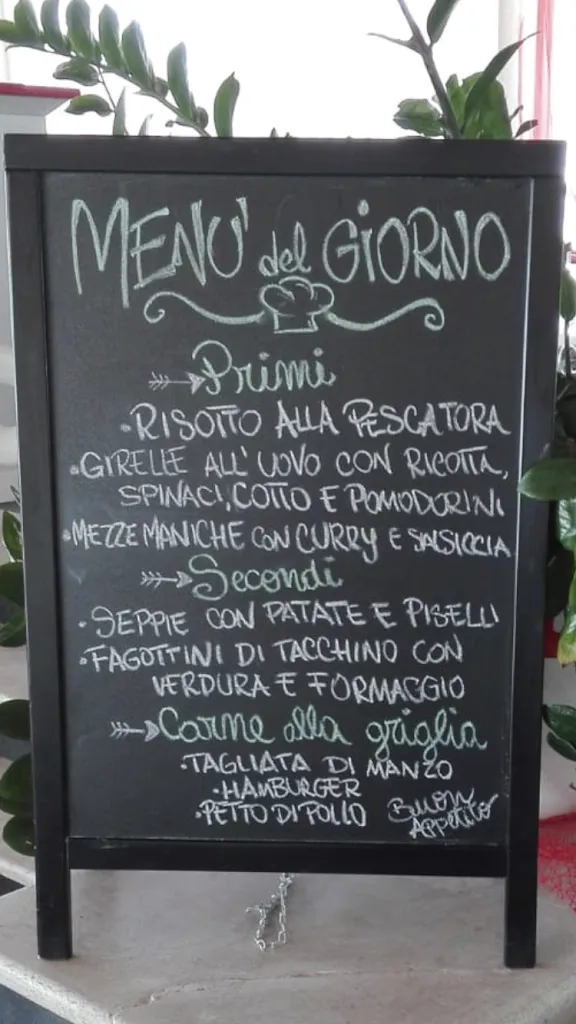 MENU' del GIORNO
Primi
• RISOTTO ALLA PESCATORA
• GIRELLE ALL' UOVO CON RICOTTA,
SPINACI, COTTO E POMODORINI
• MEZZE MANICHE CON CURRY E SALSICCIA
Secondi
• SEPPIE CON PATATE E PISELLI
• FAGOTTINI DI TACCHINO CON
VERDURA E FORMAGGIO
Carne alla griglia
• TAGLIATA DI MANZO
• HAMBURGER
• PETTO DI POLLO
Buon
Appetito